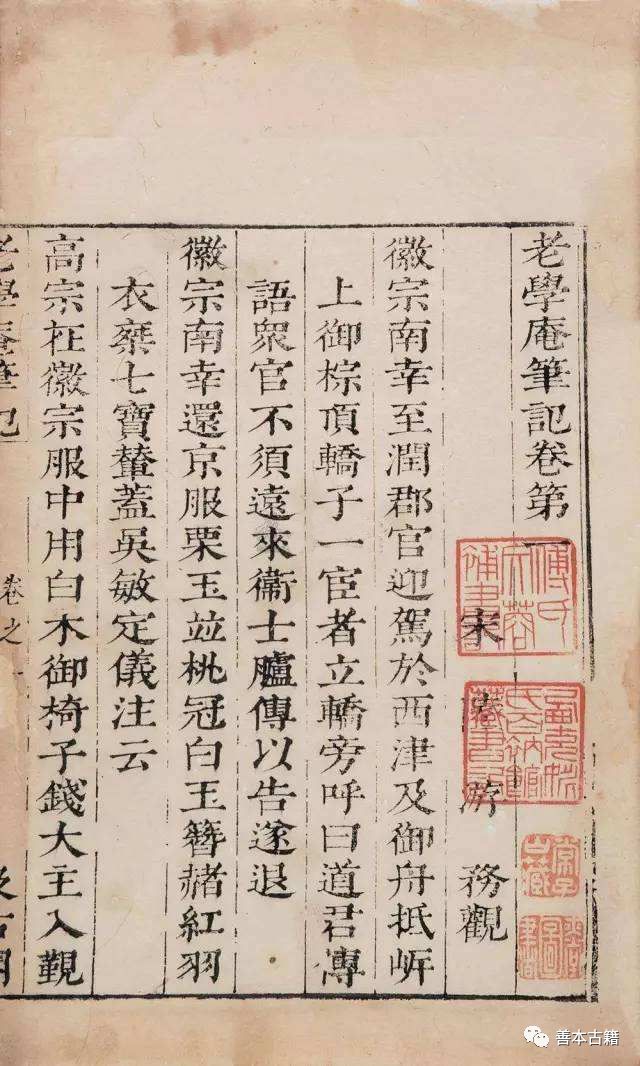 老學庵筆記卷第一
宋 陸 游 務觀
徽宗南幸至潤郡官迎駕於西津及御舟抵岸
上御棕頂轎子一宦者立轎旁呼曰道君傳
語衆官不須遠來衞士臚傳以告遂退
徽宗南幸還京服栗玉並桃冠白玉簪赭紅羽
衣乗七寶輦蓋吳敏定儀注云
高宗在徽宗服中用白木御椅子錢大主入覲
老學庵筆記
卷之一
汲古閣
善本古籍